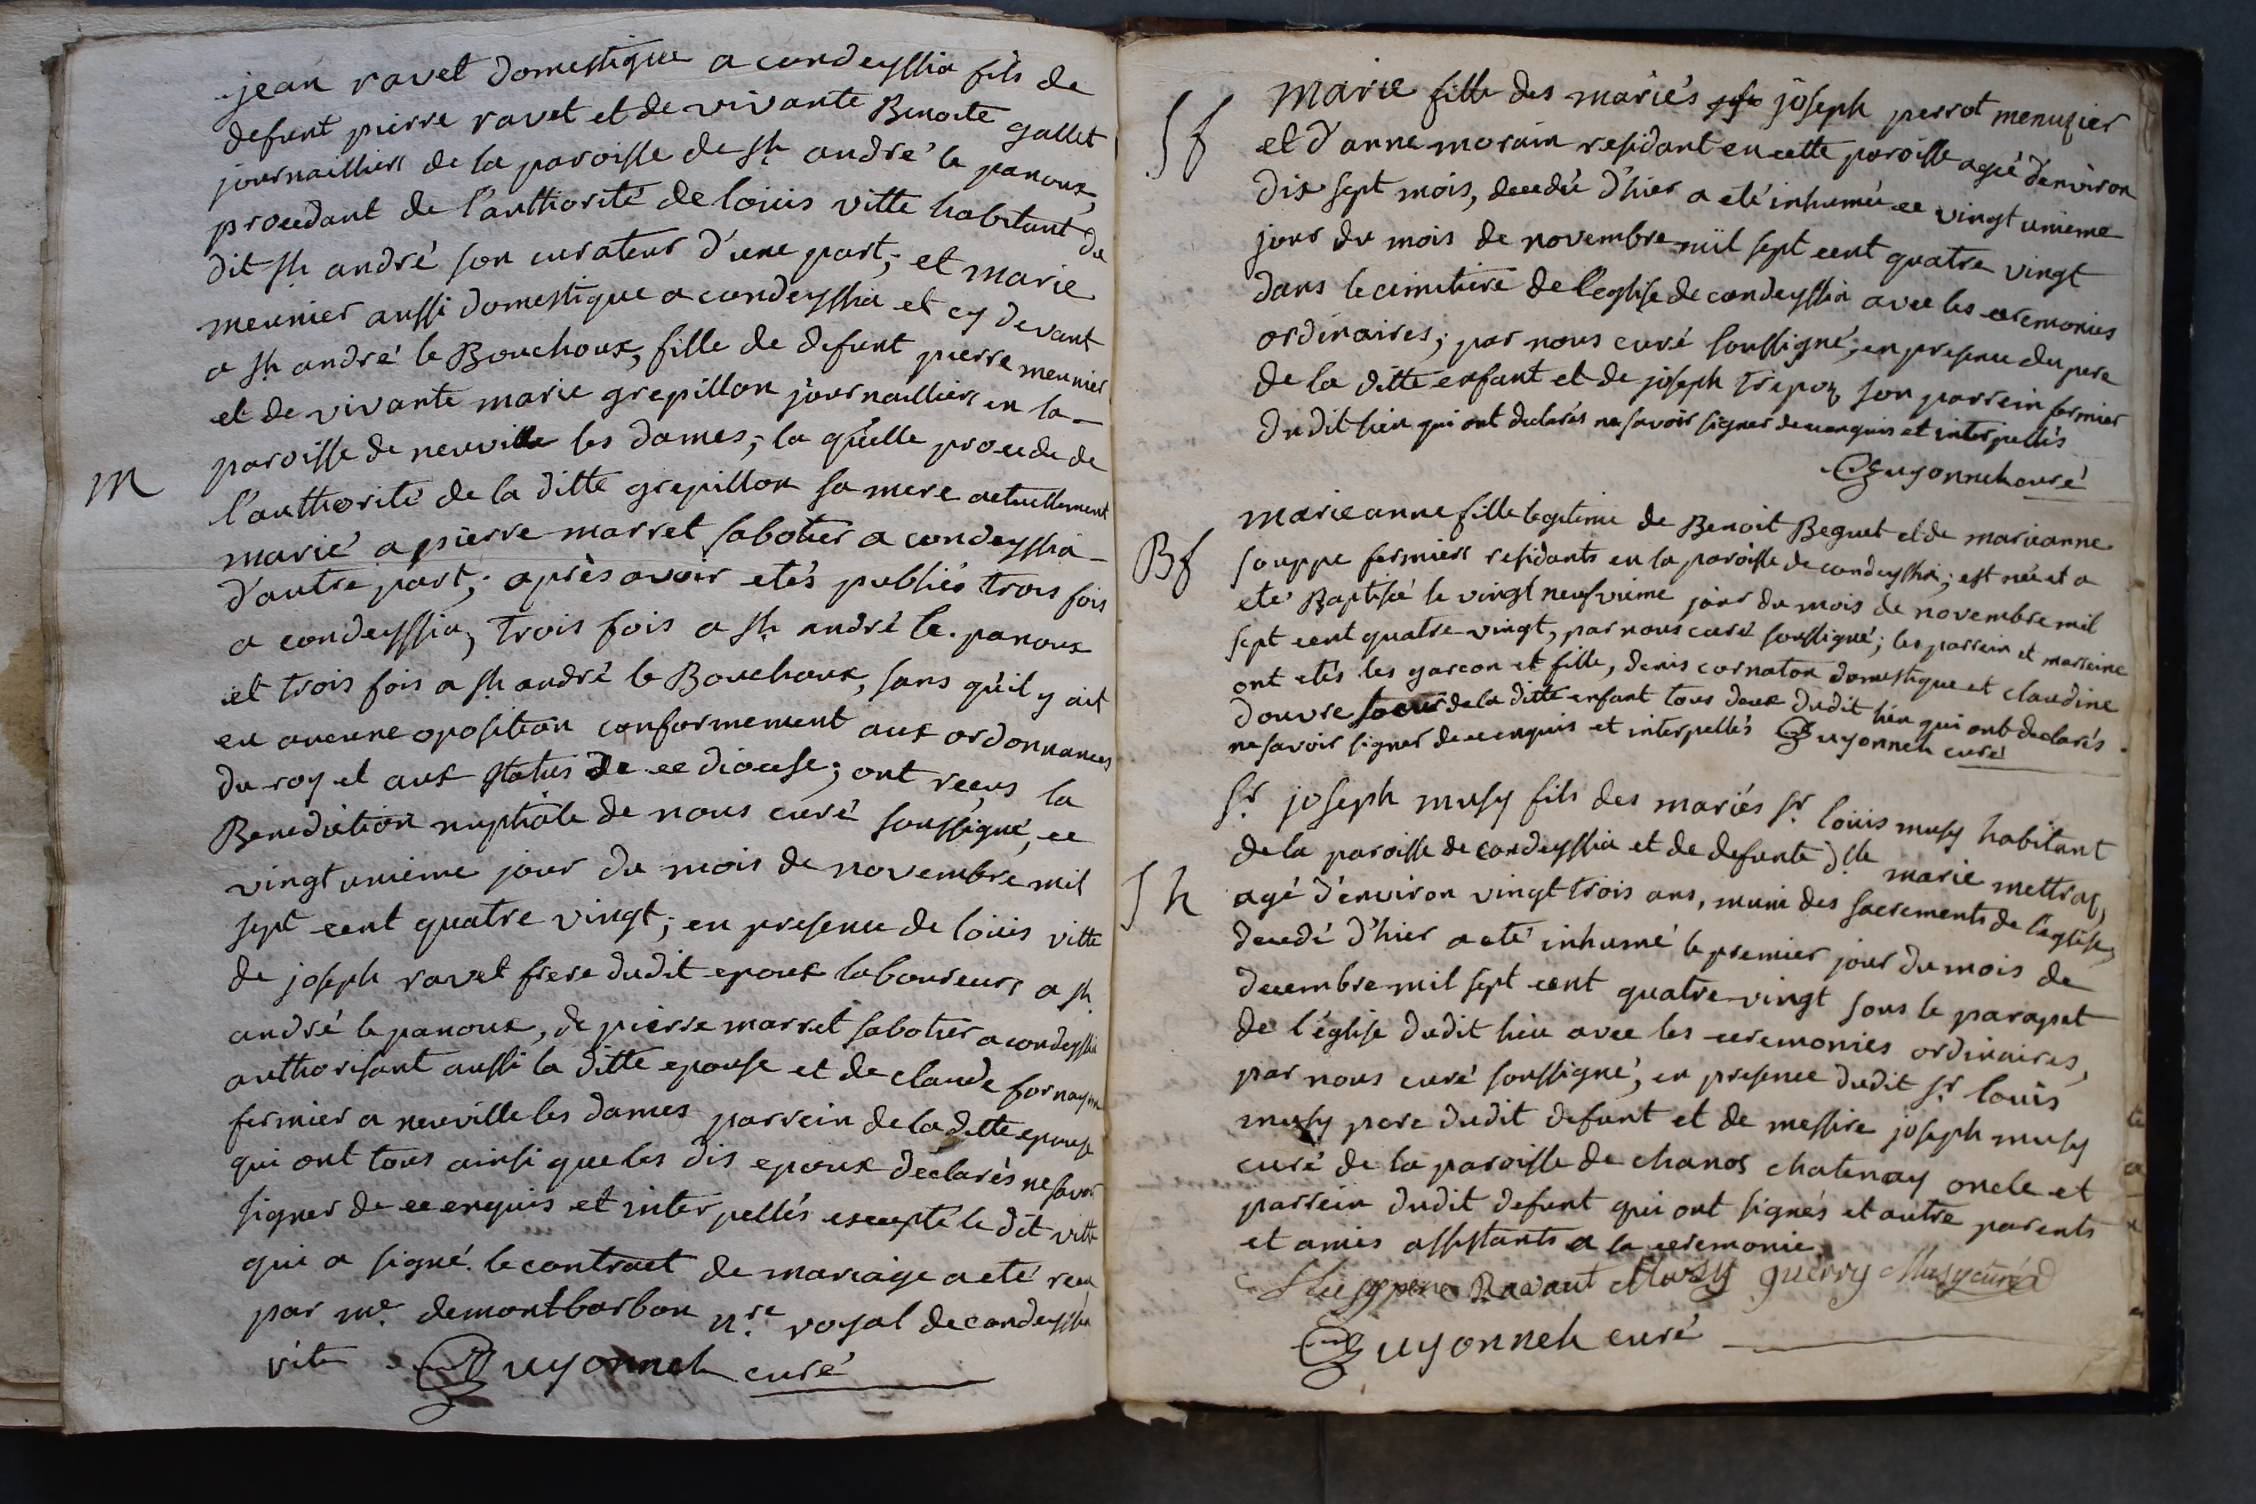 jean ravet domestique a condeyssia fils de
defunt pierre ravet et de vivante Benoite gallet
journailliers de la paroisse de st andré le panoux,
procedant de l'authorité de loüis vitte habitant du
dit st andré son curateur d'une part; et marie
meunier aussi domestique a condeyssia et cy devant
a st andré le Bouchoux, fille de defunt pierre meunier
et de vivante marie grepillon journailliere en la
paroisse de neuville les dames; la quelle procede de
M
l'authorité de la ditte grepillon sa mere actuellement
marié a pierre marret sabotier a condeyssia
d'autre part; après avoir etés publiés trois fois
a condeyssia, trois fois a st andré le panoux
et trois fois a st andré le Bouchoux, sans qu'il y ait
eu aucune oposition conformement aux ordonnances
du roy et aux statuts de ce diocese; ont reçus la
Benediction nuptiale de nous curé soussigné, ce
vingt unième jour du mois de novembre mil
sept cent quatre vingt; en presence de loüis vitte
de joseph ravet frere dudit epoux laboureurs a st
andré le panoux, de pierre marret sabotier a condeyssia
authorisant aussi la ditte epouse et de claude
fermier a neuville les dames parrein de la ditte epouse
qui ont tous ainsi que les dis epoux déclarés ne savoir
signer de ce enquis et interpellés excepté le dit vitte
qui a signé. le contract de mariage a eté recu
par me demontbarbon nre royal de condeyssia
vite Guyonneh curé
Sf
marie fille des mariés joseph perrot menuzier
et d'anne morain residant en cette paroisse agée d'environ
dix sept mois, decedée d'hier a eté inhumée ce vingt unieme
jour du mois de novembre mil sept cent quatre vingt
dans le cimitiere de l'eglise de condeyssia avec les ceremonies
ordinaires; par nous curé soussigné; en presence du pere
de la ditte enfant et de joseph trepoz son parrein fermier
dudit lieu qui ont declarés ne savoir signer de ce enquis et interpellés
Guyonneh curé
Bf
marieanne fille legitime de Benoit Beguet et de marieanne
souppe fermiers residants en la paroisse de condeyssia; est née et a
eté Baptisée le vingt neufvieme jour du mois de novembre mil
sept cent quatre vingt, par nous curé soussigné; les parrein et marreine
ont etés les garcon et fille, denis cornaton domestique et claudine
douvre soeur de la ditte enfant tous deux dudit lieu qui ont declarés
ne savoir signer de ce enquis et interpellés Guyonneh curé
Sh
Sr joseph musy fils des mariés sr loüis musy habitant
de la paroisse de condeyssia et de defunte dlle marie mettras,
agé d'environ vingt trois ans, muni des sacrements de l'eglise,
decedé d'hier a eté inhumé le premier jour du mois de
decembre mil sept cent quatre vingt sous le parapet
de l'église dudit lieu avec les ceremonies ordinaires,
par nous curé soussigné, en presence dudit sr loüis
musy pere dudit defunt et de messire joseph musy
curé de la paroisse de chanos chatenay oncle et
parrein dudit defunt qui ont signés et autre parents
et amies assistants a la ceremonie.
Musy pere Ravaut Musy guerry Musy curé
Guyonneh curé